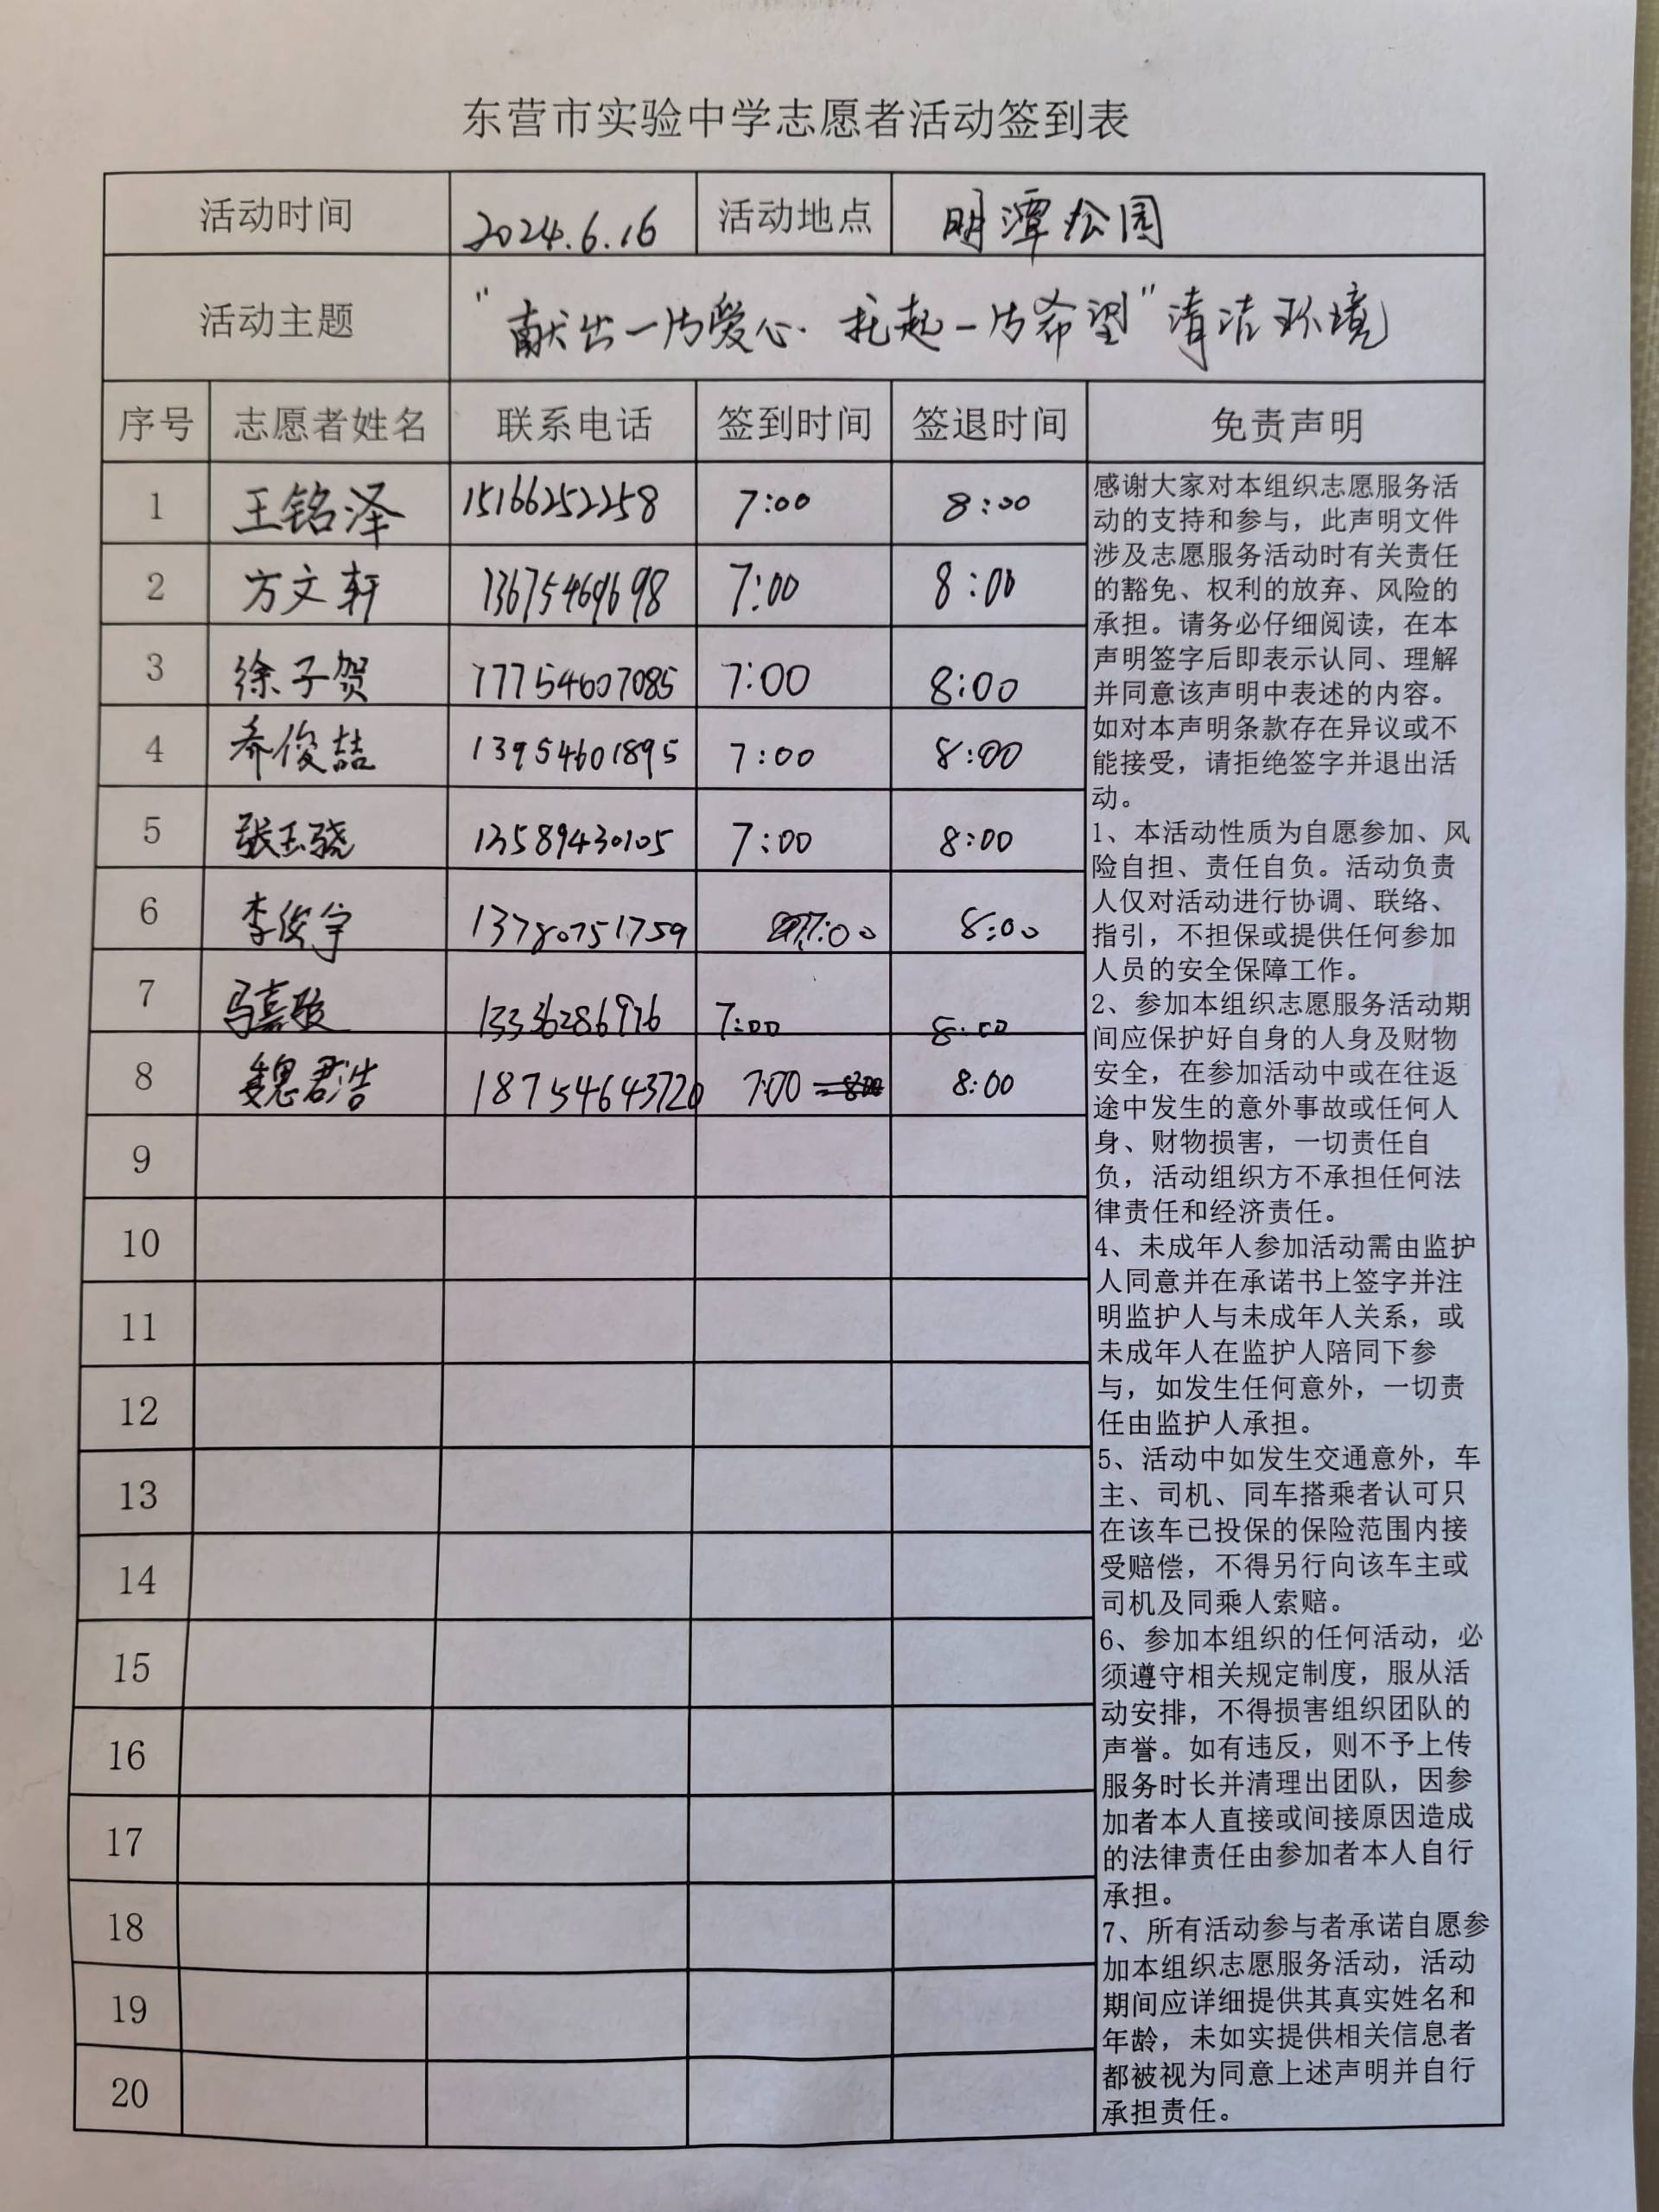 东营市实验中学志愿者活动签到表
活动时间 2024.6.16 活动地点 明潭公园
活动主题 "献出一片爱心.托起一片希望"清洁环境
序号 志愿者姓名 联系电话 签到时间 签退时间 免责声明
1 王铭泽 15166252258 7:00 8:00
2 方文轩 13675469698 7:00 8:00
3 徐子贺 17754607085 7:00 8:00
4 乔俊喆 13954601895 7:00 8:00
5 张玉骁 13589430105 7:00 8:00
6 李俊宇 13780751759 7:00 8:00
7 马嘉骏 7:00 8:00
8 魏君浩 18754643720 7:00 8:00
9
10
11
12
13
14
15
16
17
18
19
20
感谢大家对本组织志愿服务活
动的支持和参与，此声明文件
涉及志愿服务活动时有关责任
的豁免、权利的放弃、风险的
承担。请务必仔细阅读，在本
声明签字后即表示认同、理解
并同意该声明中表述的内容。
如对本声明条款存在异议或不
能接受，请拒绝签字并退出活
动。
1、本活动性质为自愿参加、风
险自担、责任自负。活动负责
人仅对活动进行协调、联络、
指引，不担保或提供任何参加
人员的安全保障工作。
2、参加本组织志愿服务活动期
间应保护好自身的人身及财物
安全，在参加活动中或在往返
途中发生的意外事故或任何人
身、财物损害，一切责任自
负，活动组织方不承担任何法
律责任和经济责任。
4、未成年人参加活动需由监护
人同意并在承诺书上签字并注
明监护人与未成年人关系，或
未成年人在监护人陪同下参
与，如发生任何意外，一切责
任由监护人承担。
5、活动中如发生交通意外，车
主、司机、同车搭乘者认可只
在该车已投保的保险范围内接
受赔偿，不得另行向该车主或
司机及同乘人索赔。
6、参加本组织的任何活动，必
须遵守相关规定制度，服从活
动安排，不得损害组织团队的
声誉。如有违反，则不予上传
服务时长并清理出团队，因参
加者本人直接或间接原因造成
的法律责任由参加者本人自行
承担。
7、所有活动参与者承诺自愿参
加本组织志愿服务活动，活动
期间应详细提供其真实姓名和
年龄，未如实提供相关信息者
都被视为同意上述声明并自行
承担责任。